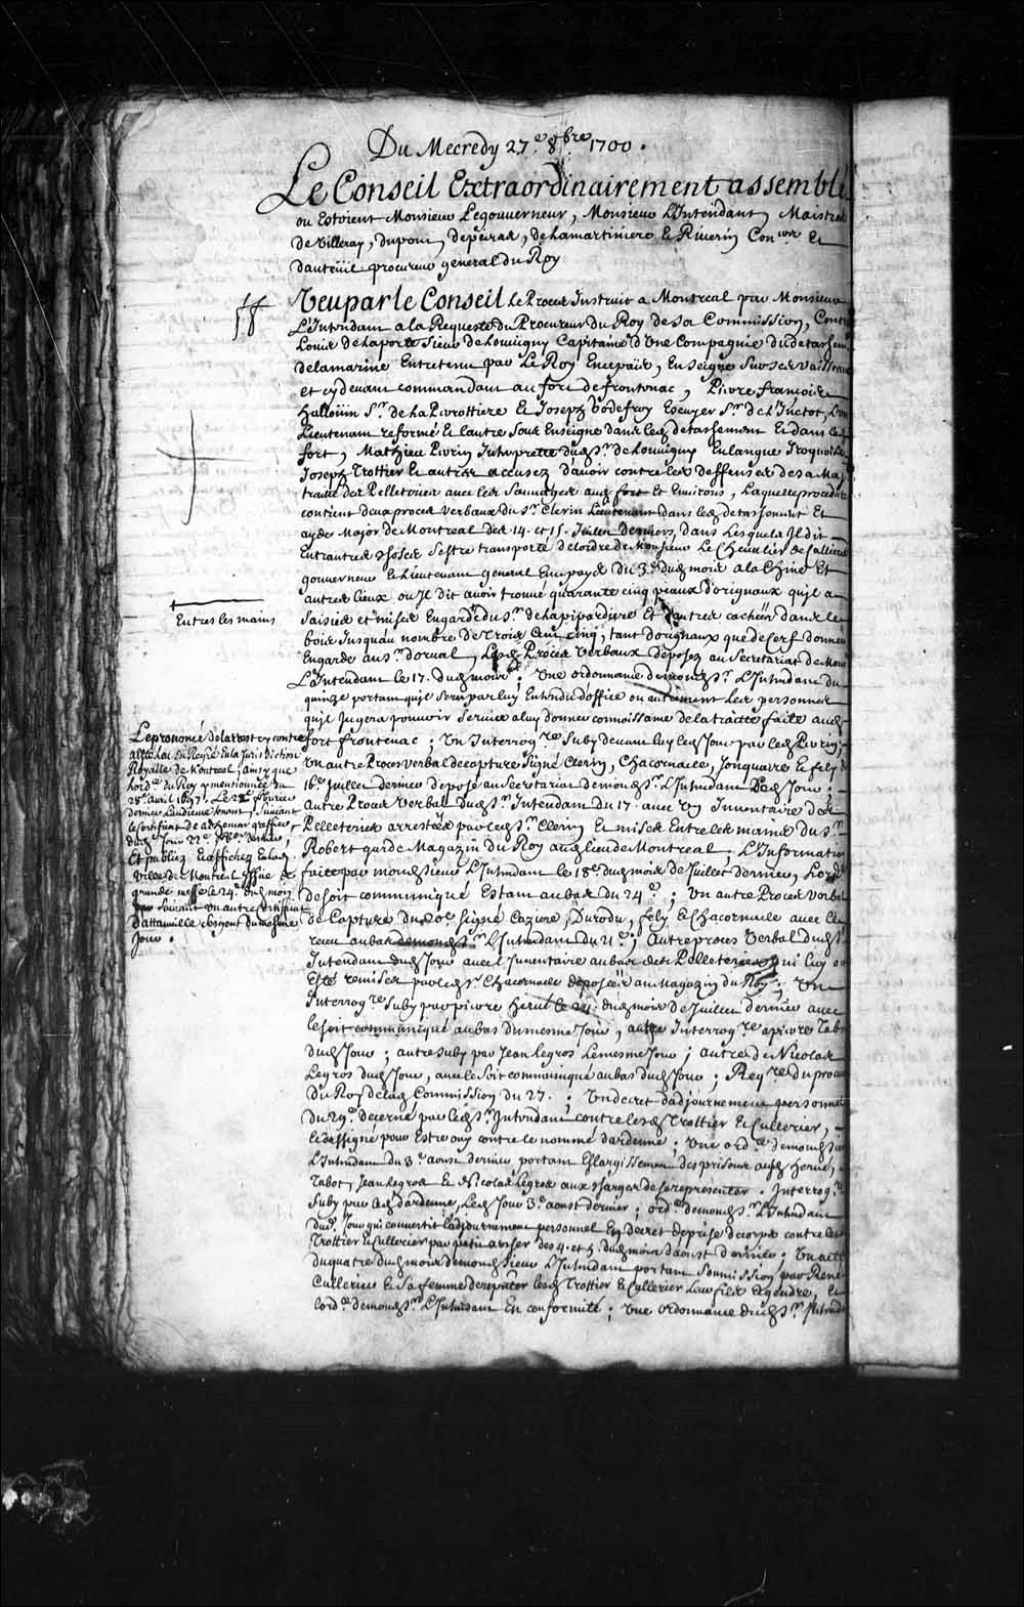 Du Mecredy 27.e 8bre 1700.
Le Conseil Extraordinairement assemblé
ou Estoient Monsieur Legouverneur, Monsieur L'Intendant, Maistres
de Villeray, dupont, depeiras, delamartiniere & Riverin Coners Et
dauteüil procureur general du Roy
Veu par le Conseil le Proces Instruit a Montreal par Monsieur
L'Intendant a la Requeste du Procureur du Roy de sa Commission, Contre
Louis de laporte Sieur de Louuigny Capitaine d'Une Compagnie du detachemt
delamarine Entretenu par Le Roy Encepaïs, Enseigne sur ses vaisseaux
et cydeuant commandant au fort defrontenac, Pierre françois
Sr. de la & Joseph Godefroy Escuyer Sr. de
Lieutenant reformé & lautre sous Enseigne dans led detachement & dans led
fort, Mathieu Riverin Interprette dud Sr. de Louuigny En langue Iroquoise
Joseph Trottier & autres accusez dauoir contre les deffenses de sa Maj
traitté des Pelleteries auec les Sauuages aud fort et Enuirons, Laquelle procedure
contient deux proces Verbaux du Sr. Clerin Lieutenant dans led detachement Et
ayde Major de Montreal des 14. et 15. Juillet derniers, dans Lesquels Il dit
Entrautres choses sestre transporté de lordre de Monsieur Le Cheualier de Callieres
gouuerneur & Lieutenant general Encepays du 3e dud mois a la Chine Et
autres lieux ou Il dit auoir trouué quarante cinq peaux dorignaux quil a
Saisies et mises Engarde du Sr. de lapipardiere Et dautres cachées dans le
bois Jusquau nombre de trois Cent cinq, tant dorignaux que de Cerf donnees
Engarde au Sr. dorual, Lesd Proces Verbaux deposez au Secretariat de Mond
L'Intendant le 17. dud mois; Une ordonnance de mond Sr. L'Intendant du
quinze portant quil sera par luy Entendu doffice ou autrement les personnes
quil Jugera pouuoir seruir a luy donner connoissance de la traitte faite aud
fort frontenac; Un Interrogre. suby deuant luy led Jour par led Riverin;
Un autre Proces verbal de capture signé Clerin, Chacornacle, Jonquaire & fely du
16e Juillet dernier deposé au Secretariat demond Sr. L'Intendant led Jour;
autre Proces Verbal dud Sr. Intendant du 17. auec un Inuentaire des
Pelleteries arrestées par led Sr. Clerin & mises Entre les mains du Sr.
Robert garde Magazin du Roy aud lieu de Montreal; L'Information
faite par mond sieur L'Intendant le 18e dud mois de Juillet dernier, Lord
desoit communiqué Estant au bas du 24e; Un autre Proces Verbal
de Capture du 20e signé Laziere, Durodu, fely & Chacornacle auec le
receu au bas demond Sr. L'Intendant du 21e; Autre proces Verbal dud Sr
Intendant dud Jour auec l'Inuentaire au bas des Pelleteries qui luy ont
Esté remises par led Sr. Chacornacle deposées au Magazin du Roy; Un
Interrogre. suby par pierre Herué le 24. dud mois de Juillet dernier auec
le soit communiqué au bas du mesme Jour, autre Interrogre. a pierre Tabot
dud Jour; autre suby par Jean Legros Le mesme Jour; autre de Nicolas
Legros dud Jour, auec le soit communiqué au bas dud Jour; Reqre. du procur
du Roy de lad Commission du 27.; Un decret dadjournement personnel
du 29e decerné par led Sr. Intendant contre lesd Trottier & Cullerier,
& dassigné pour Estre ouy contre le nommé dardenne; Une ordce. demond Sr
L'Intendant du 3e aoust dernier portant Eslargissement des prisons ausd Herué,
Tabot, Jean Legros & Nicolas Legros aux charges de se representer. Interrogre.
suby par led dardenne, led Jour 3e aoust dernier; ordce. demond Sr. L'Intendant
dud. Jour qui conuertit ladjournement personnel En decret deprise decorps contre lesd
Trottier & Cullerier des 4. et 5. dud mois daoust dernier; Un acte
du quatre dud mois demond sieur L'Intendant portant soumission par René
Cullerier & sa femme de representer lesd Trottier & Cullerier Leur fils & gendre, &
lordce. demond Sr. L'Intendant En conformité; Une ordonnance dud Sr. Intend
Entre les mains
Le prononcé de larrest cy contre
a esté Leu En Regré En la Jurisdiction
Royalle de Montreal, ainsy que
lordce. du Roy y mentionnée du
28e. avril 1697. Le
dernier Laudience tenant, suiuant
le certificat de adhemar greffier
dud Jour
Et publiez & affichez En lad
ville de Montreal Issue de
grande messe le 24e. dud mois
suiuant un autre certificat
dattanuille sergent du mesme
Jour.